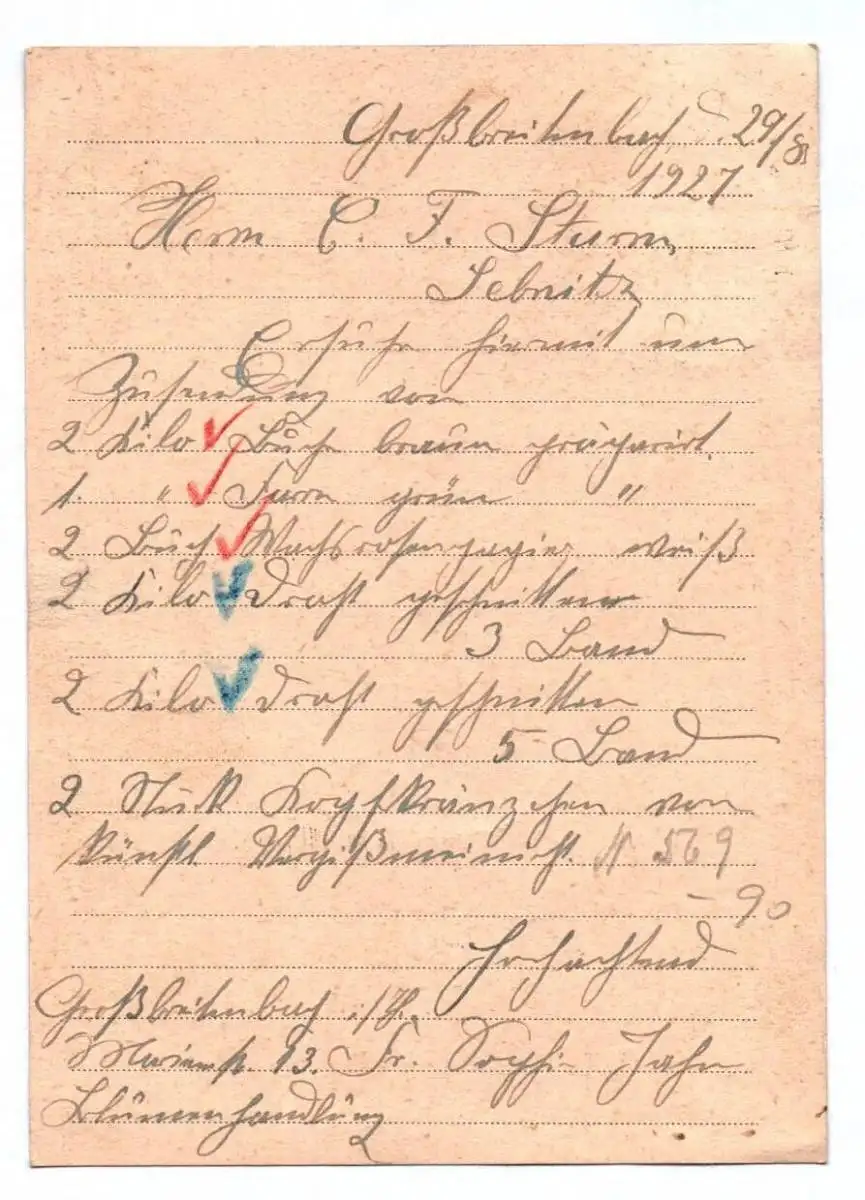 Großbreitenbach d. 29/8
1927
Herrn C. F. Sturm,
Sebnitz
Ersuche hiermit um
Zusendung von
2 Kilo Buche braun präparirt.
1. " Farn grün "
2 Buch Wachsrosenpapier weiß
2 Kilo Draht geschnitten
3 Band
2 Kilo Draht geschnitten
5 Band
2 Stück Kopfkränzchen von
künstl Vergißmeinnicht. N 569
– 90
Hochachtend
Großbreitenbach i/Th.
Marienst. 13. Fr. Sophie Jahn
Blumenhandlung